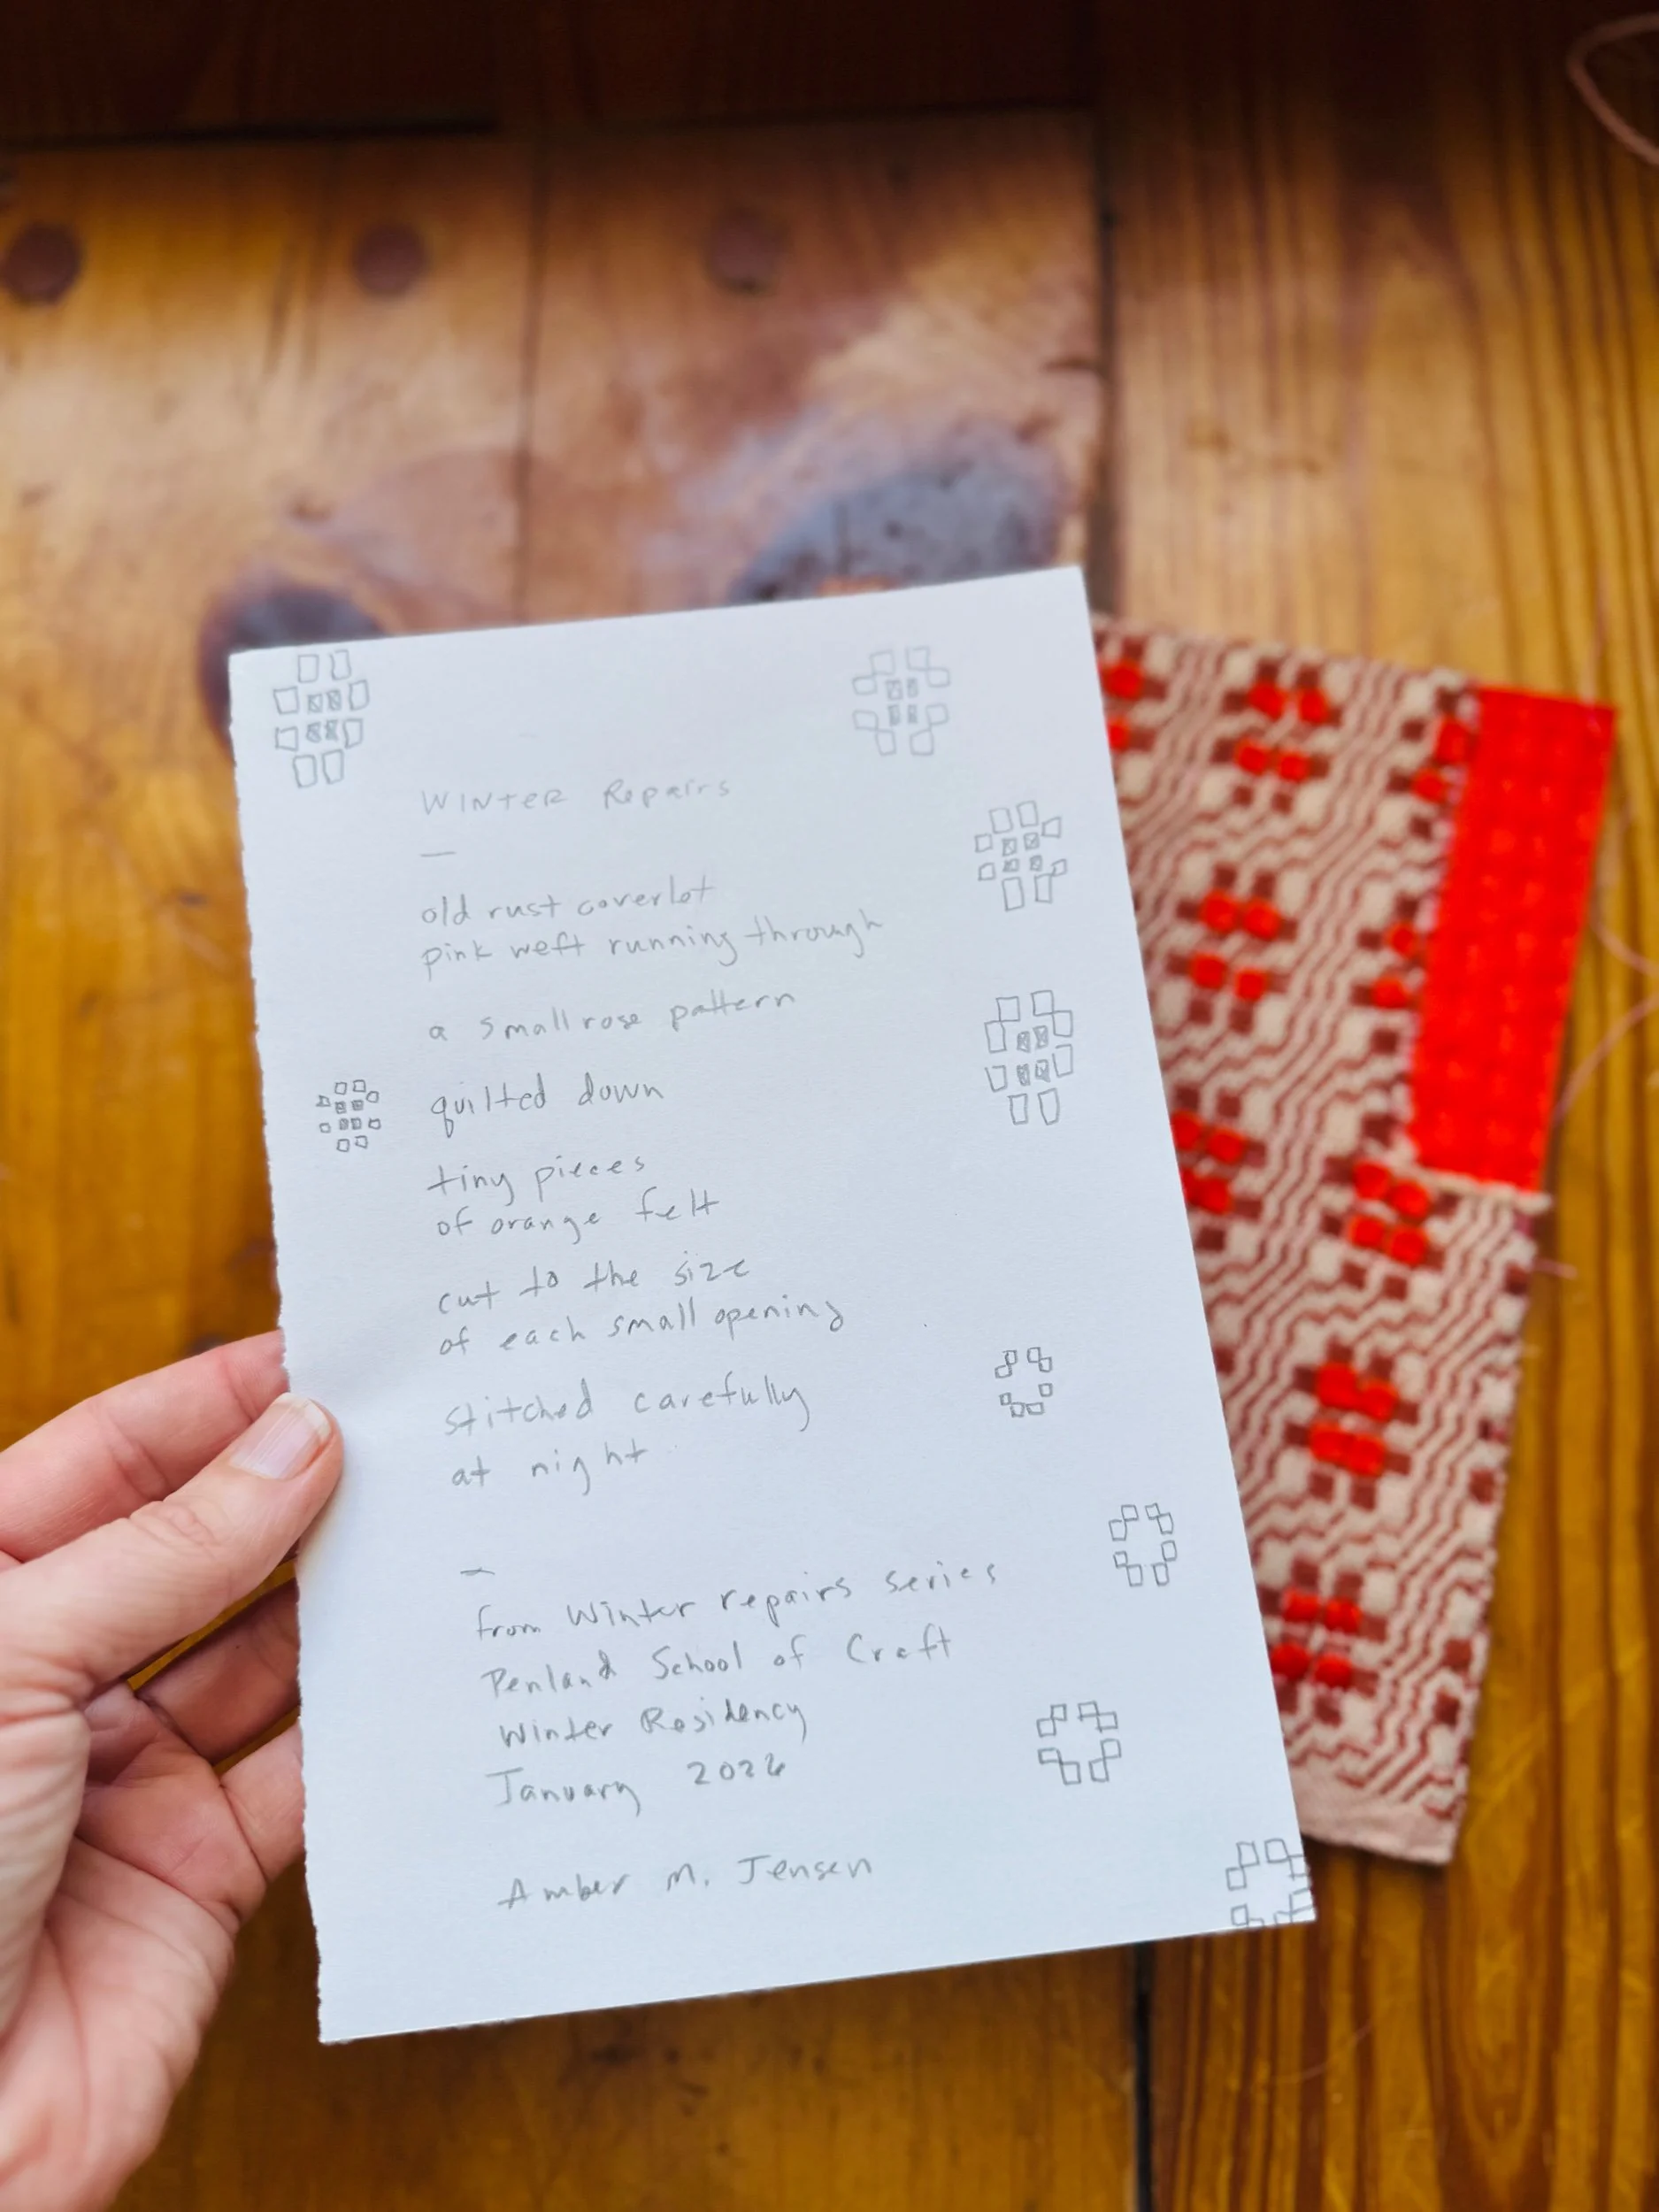 WINTER Repairs
—
old rust coverlot
pink weft running through
a small rose pattern
quilted down
tiny pieces
of orange felt
cut to the size
of each small opening
stitched carefully
at night
—
from Winter repairs series
Penland School of Craft
Winter Residency
January 2026
Amber M. Jensen